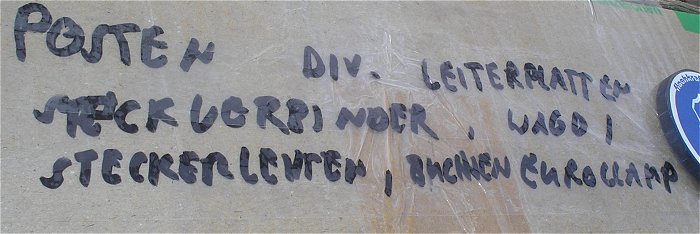 POSTEN DIV. LEITERPLATTEN
STECKVERBINDER, WAGO,
STECKERLEISTEN, BUCHSEN EUROCLAMP